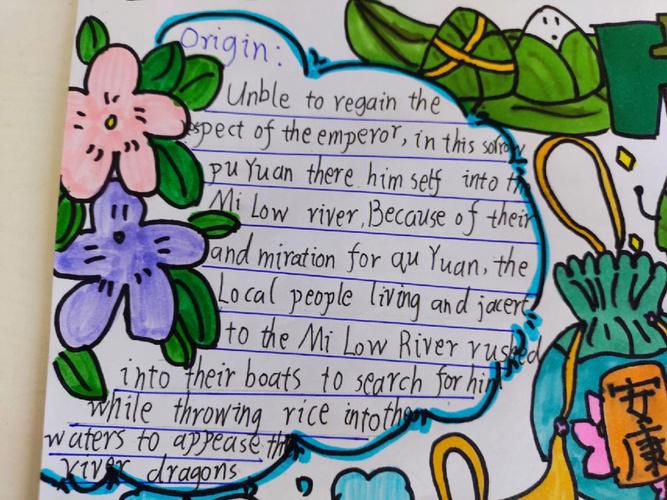 Origin:
Unble to regain the
espect of the emperor, in this sorrow
pu Yuan there him self into the
Mi Low river, Because of their
and miration for qu Yuan, the
Local people living and jacert
to the Mi Low River rushed
into their boats to search for him
while throwing rice into the
waters to appease the
river dragons
安康